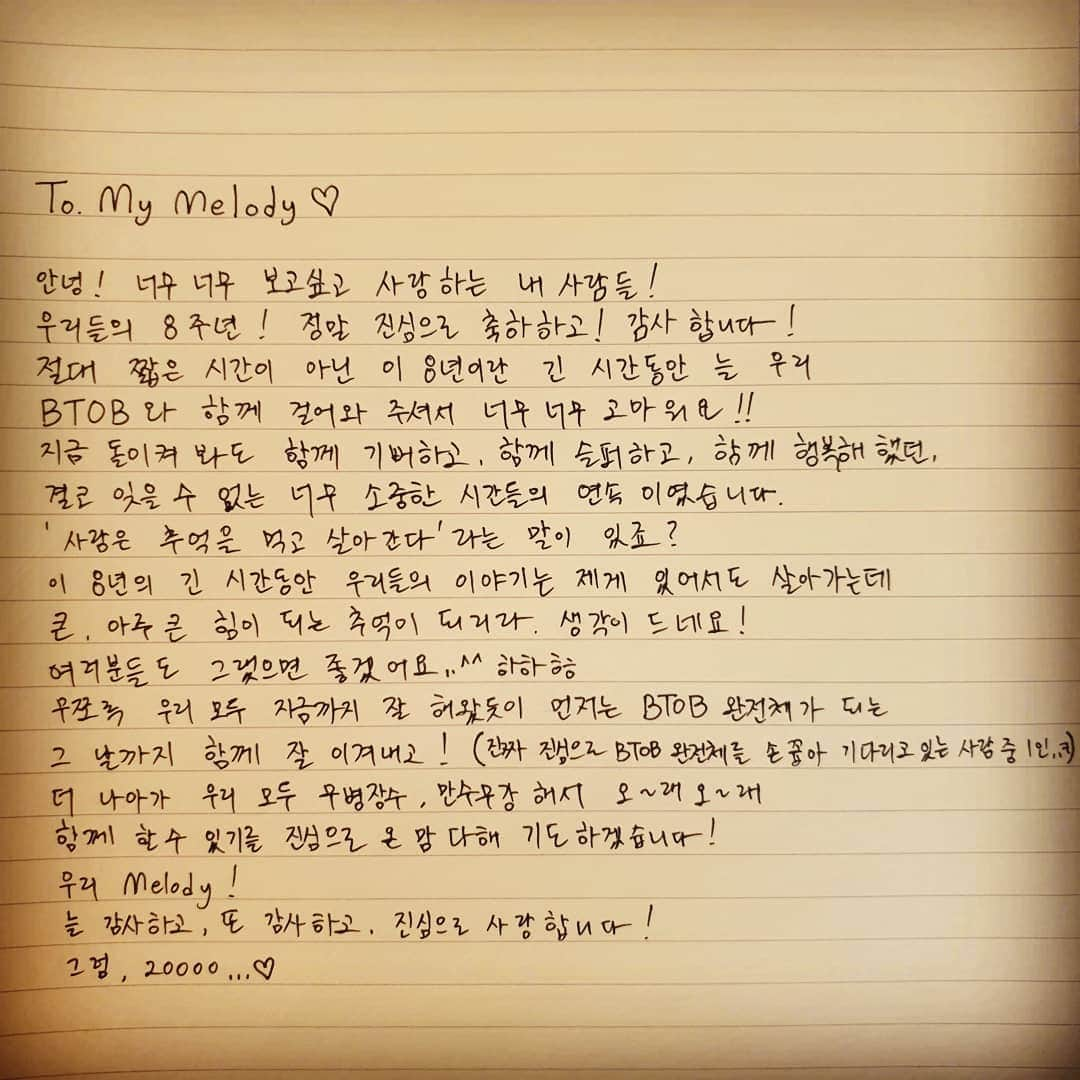 To. My Melody ♡
안녕! 너무 너무 보고싶고 사랑하는 내 사람들!
우리들의 8주년! 정말 진심으로 축하하고! 감사합니다!
절대 짧은 시간이 아닌 이 8년이란 긴 시간동안 늘 우리
BTOB와 함께 걸어와 주셔서 너무 너무 고마워요!!
지금 돌이켜 봐도 함께 기뻐하고, 함께 슬퍼하고, 함께 행복해 했던,
결코 잊을 수 없는 너무 소중한 시간들의 연속 이였습니다.
'사랑은 추억을 먹고 살아간다'라는 말이 있죠?
이 8년의 긴 시간동안 우리들의 이야기는 제게 있어서도 살아가는데
큰, 아주 큰 힘이 되는 추억이 되리라. 생각이 드네요!
여러분들도 그랬으면 좋겠어요..^^ 하하하
무쪼록 우리 모두 지금까지 잘 해왔듯이 먼저는 BTOB 완전체가 되는
그 날까지 함께 잘 이겨내고! (진짜 진심으로 BTOB 완전체를 손 꼽아 기다리고 있는 사람 중 1인..ㅋ)
더 나아가 우리 모두 무병장수, 만수무강 해서 오~래 오~래
함께 할 수 있기를 진심으로 온 맘 다해 기도하겠습니다!
우리 Melody!
늘 감사하고, 또 감사하고, 진심으로 사랑합니다!
그럼, 20000...♡